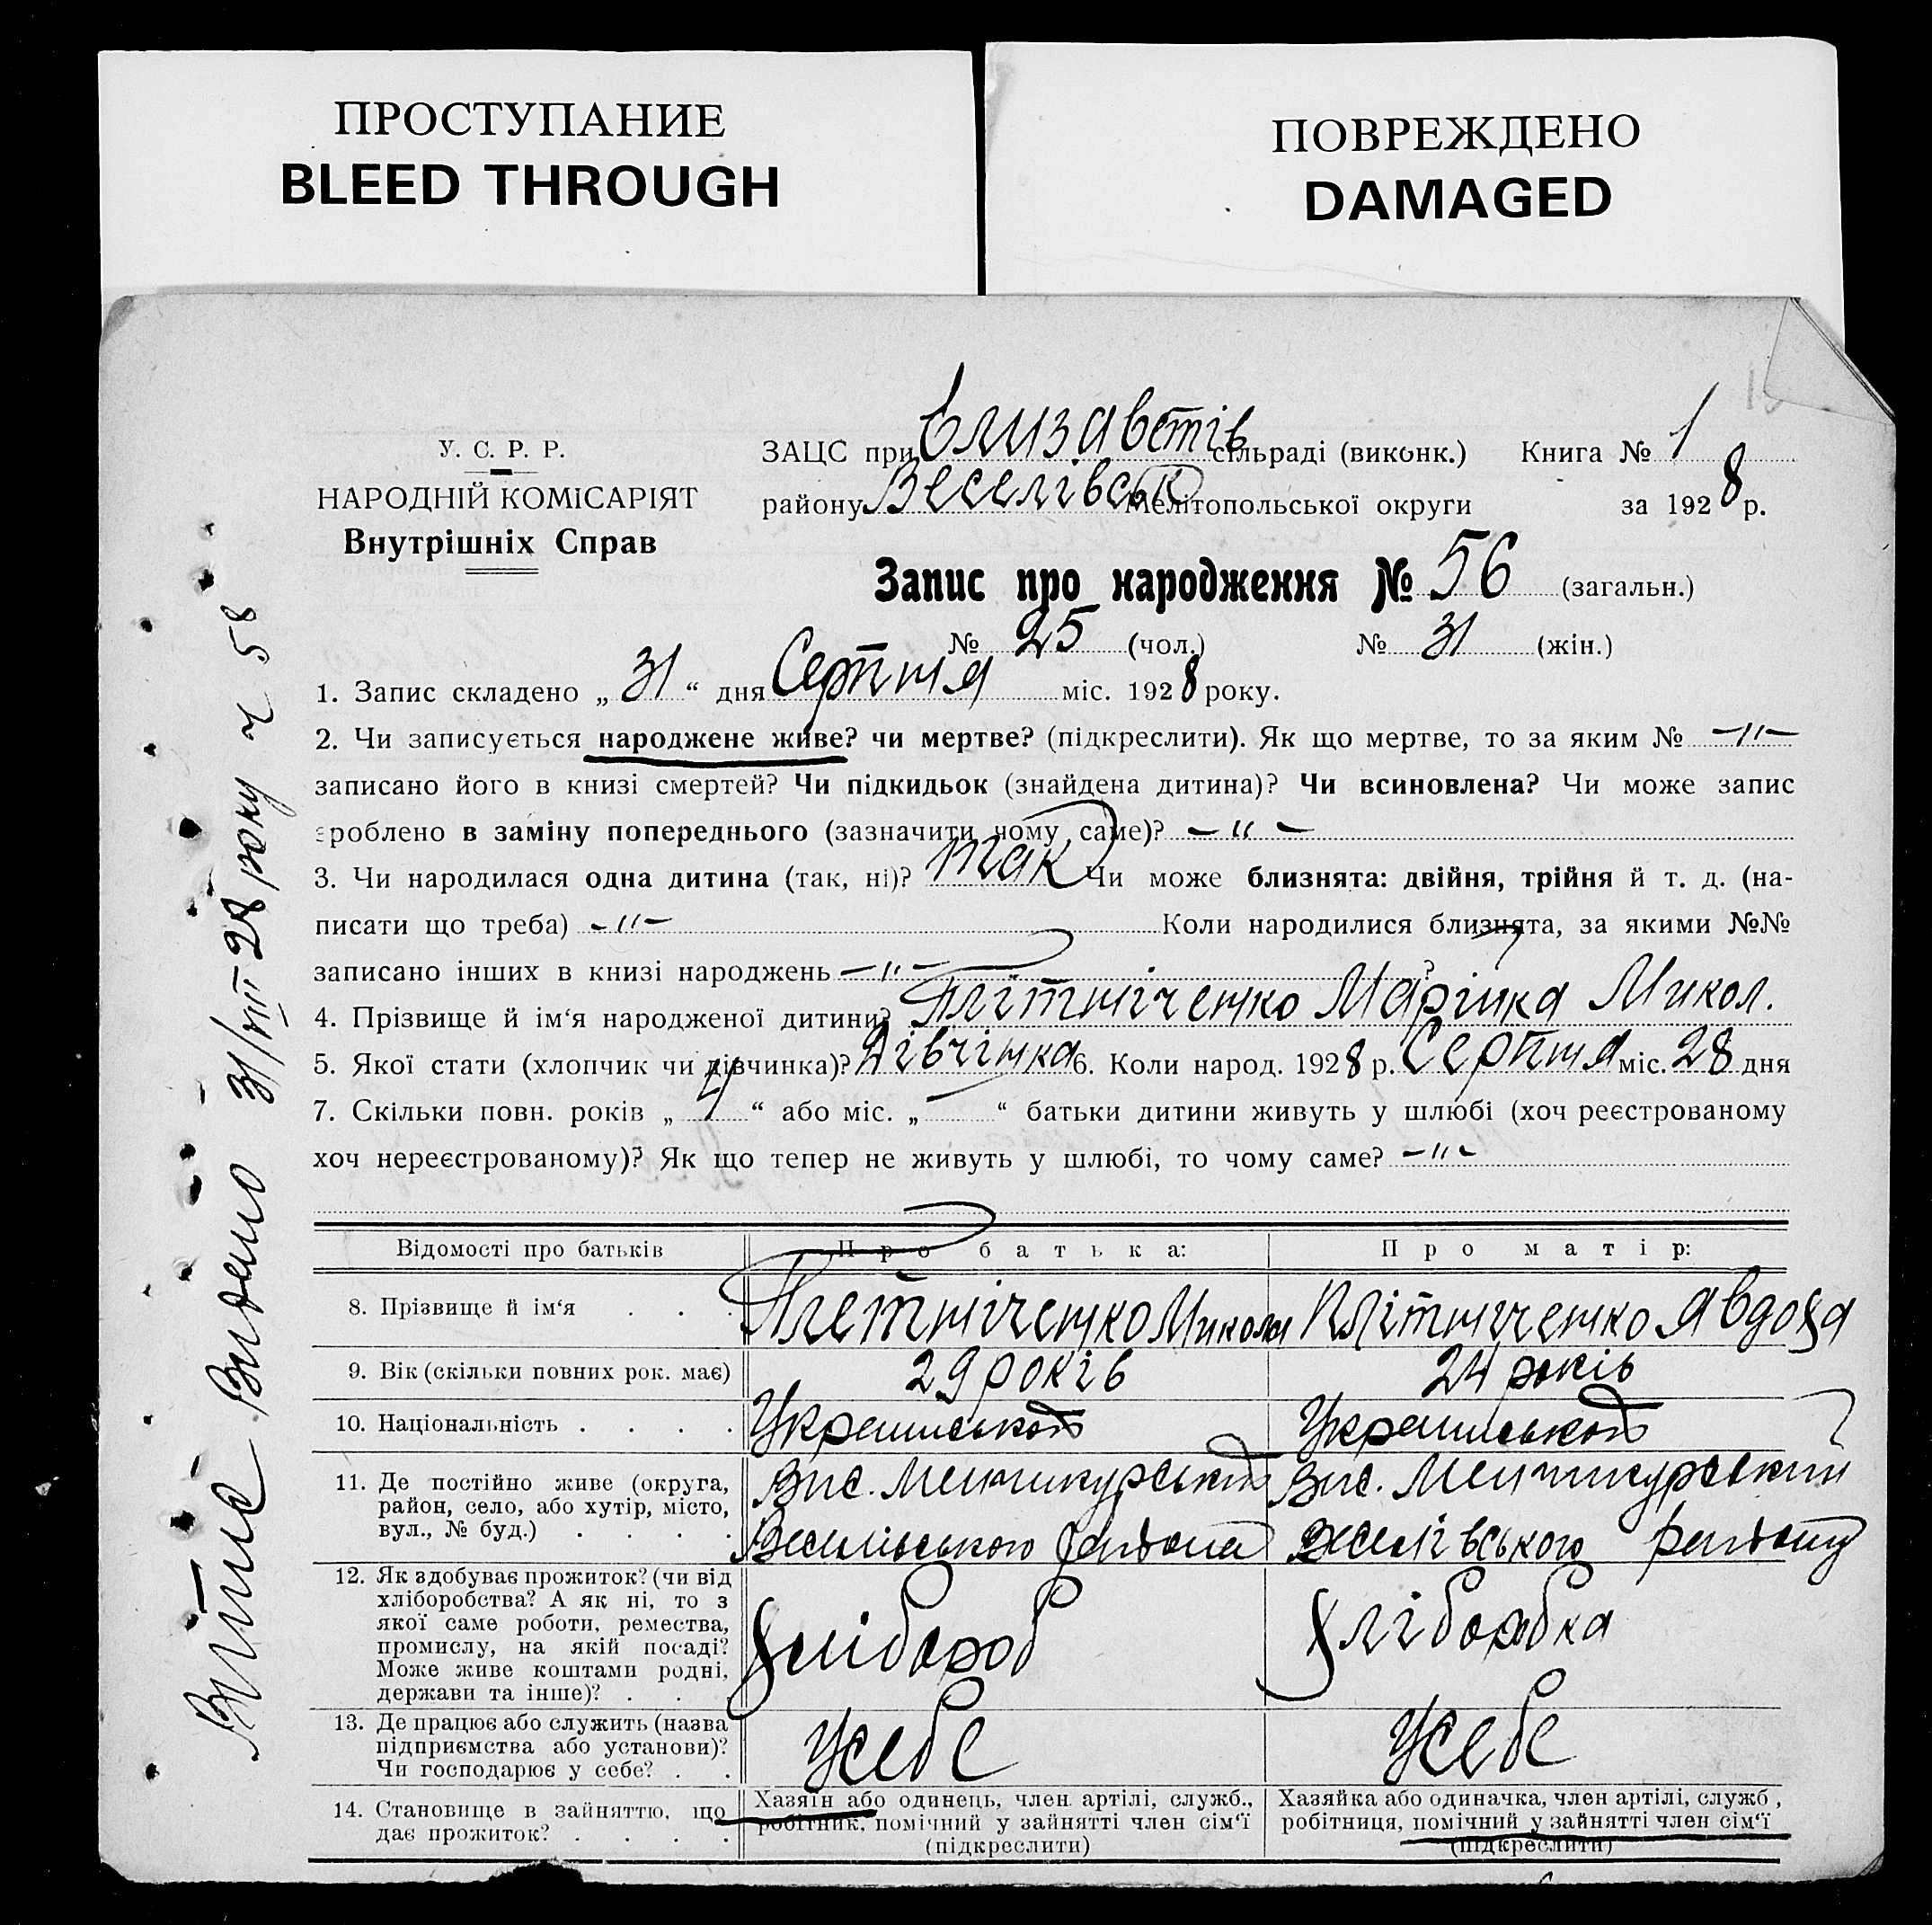 ПРОСТУПАНИЕ
BLEED THROUGH
ПОВРЕЖДЕНО
DAMAGED
У. С. Р. Р.
НАРОДНІЙ КОМІСАРІЯТ
Внутрішніх Справ
ЗАЦС при Елизаветів сільраді (виконк.) Книга № 1
району Веселівськ Мелітопольської округи за 1928 р.
Запис про народження № 56 (загальн.)
№ 25 (чол.) № 31 (жін.)
1. Запис складено „ 31 “ дня Серпня міс. 1928 року.
2. Чи записується народжене живе? чи мертве? (підкреслити). Як що мертве, то за яким № -"-
записано його в книзі смертей? Чи підкидьок (знайдена дитина)? Чи всиновлена? Чи може запис
зроблено в заміну попереднього (зазначити чому саме)? -"-
3. Чи народилася одна дитина (так, ні)? так Чи може близнята: двійня, трійня й т. д. (на-
писати що треба) -"- Коли народилися близнята, за якими №№
записано інших в книзі народжень -"- ?
4. Прізвище й ім‘я народженої дитини? Плітніченко Марійка Микол.
5. Якої стати (хлопчик чи дівчинка)? Дівчінка 6. Коли народ. 1928 р. Серпня міс. 28 дня
7. Скільки повн. років „ 4 “ або міс. „ — “ батьки дитини живуть у шлюбі (хоч реєстрованому
хоч нереєстрованому)? Як що тепер не живуть у шлюбі, то чому саме? -"-
Відомості про батьків Про батька: Про матір:
8. Прізвище й ім‘я . . . Плетніченко Микола Плітниченко Явдоха
9. Вік (скільки повних рок. має) 29 років 24 років
10. Національність . . . .
11. Де постійно живе (округа,
район, село, або хутір, місто,
вул., № буд.) . . . .
Вис. Менчикурський Вис. Менчикурський
Веселівського району Веселівського району
12. Як здобуває прожиток? (чи від
хліборобства? А як ні, то з
якої саме роботи, ремества,
промислу, на якій посаді?
Може живе коштами родні,
держави та інше)? . . .
Хлібороб Хліборобка
13. Де працює або служить (назва
підприємства або установи)?
Чи господарює у себе? . .
Усебе Усебе
14. Становище в зайняттю, що
дає прожиток? . . . .
Хазяїн або одинець, член артілі, служб.,
робітник, помічний у зайнятті член сім‘ї
(підкреслити)
Хазяйка або одиначка, член артілі, служб.,
робітниця, помічний у зайнятті член сім‘ї
(підкреслити)
Витяг Видано 31/VIII 28 року ч 58